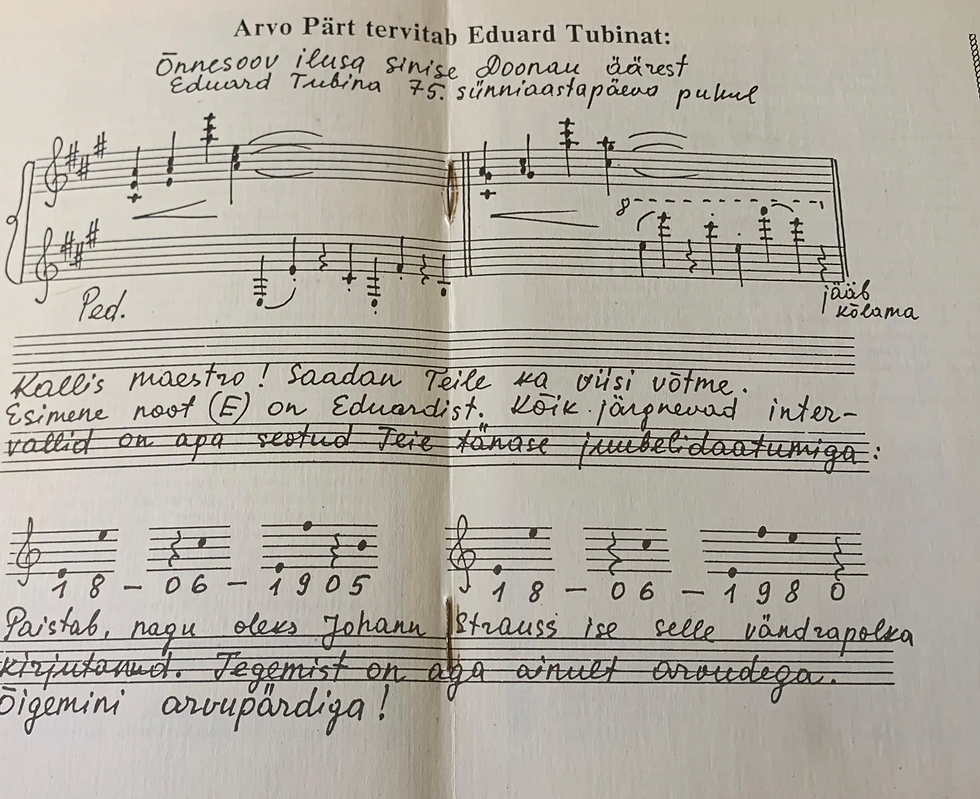 Arvo Pärt tervitab Eduard Tubinat:
Õnnesoov ilusa sinise Doonau äärest
Eduard Tubina 75. sünniaastapäeva puhul
8
Ped.
jääb
kõlama
Kallis maestro! Saadan Teile ka viisi võtme.
Esimene noot (E) on Eduardist. Kõik järgnevad inter-
vallid on aga seotud Teie tänase juubelidaatumiga:
18 – 06 – 1905 18 – 06 – 1980
Paistab, nagu oleks Johann Strauss ise selle vändrapolka
kirjutanud. Tegemist on aga ainult arvudega.
Õigemini arvupärdiga!